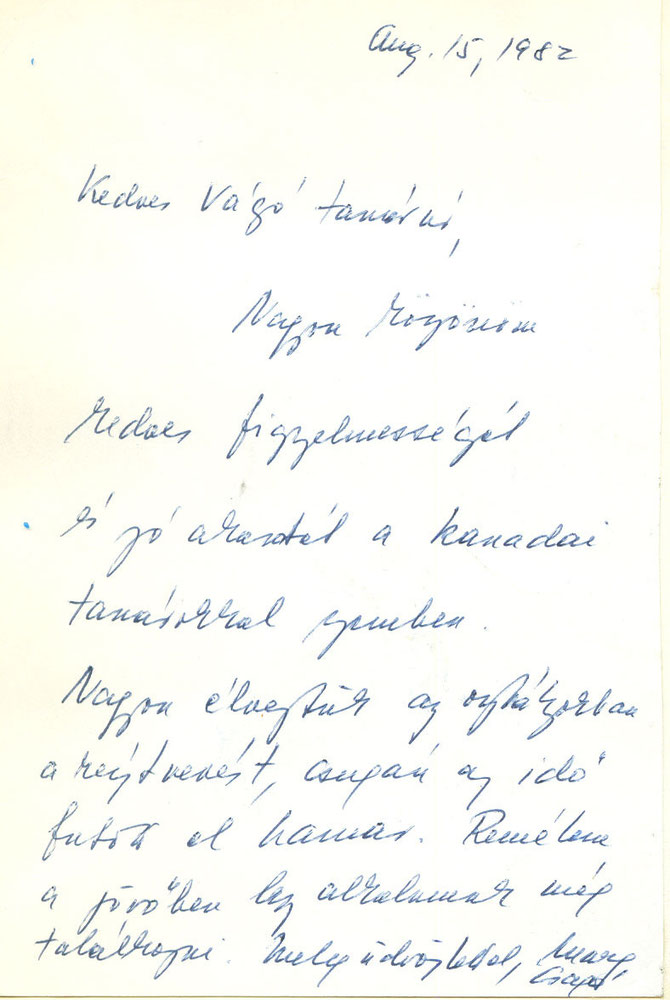 Aug. 15, 1982
Kedves Vágó tanárnő,
Nagyon köszönöm
kedves figyelmességét
és jó akaratát a kanadai
tanárokkal szemben.
Nagyon élveztük az osztályokban
a résztvevést, csupán az idő
futott el hamar. Remélem
a jövőben lesz alkalmunk még
találkozni. Meleg üdvözlettel, Marg
Csapó